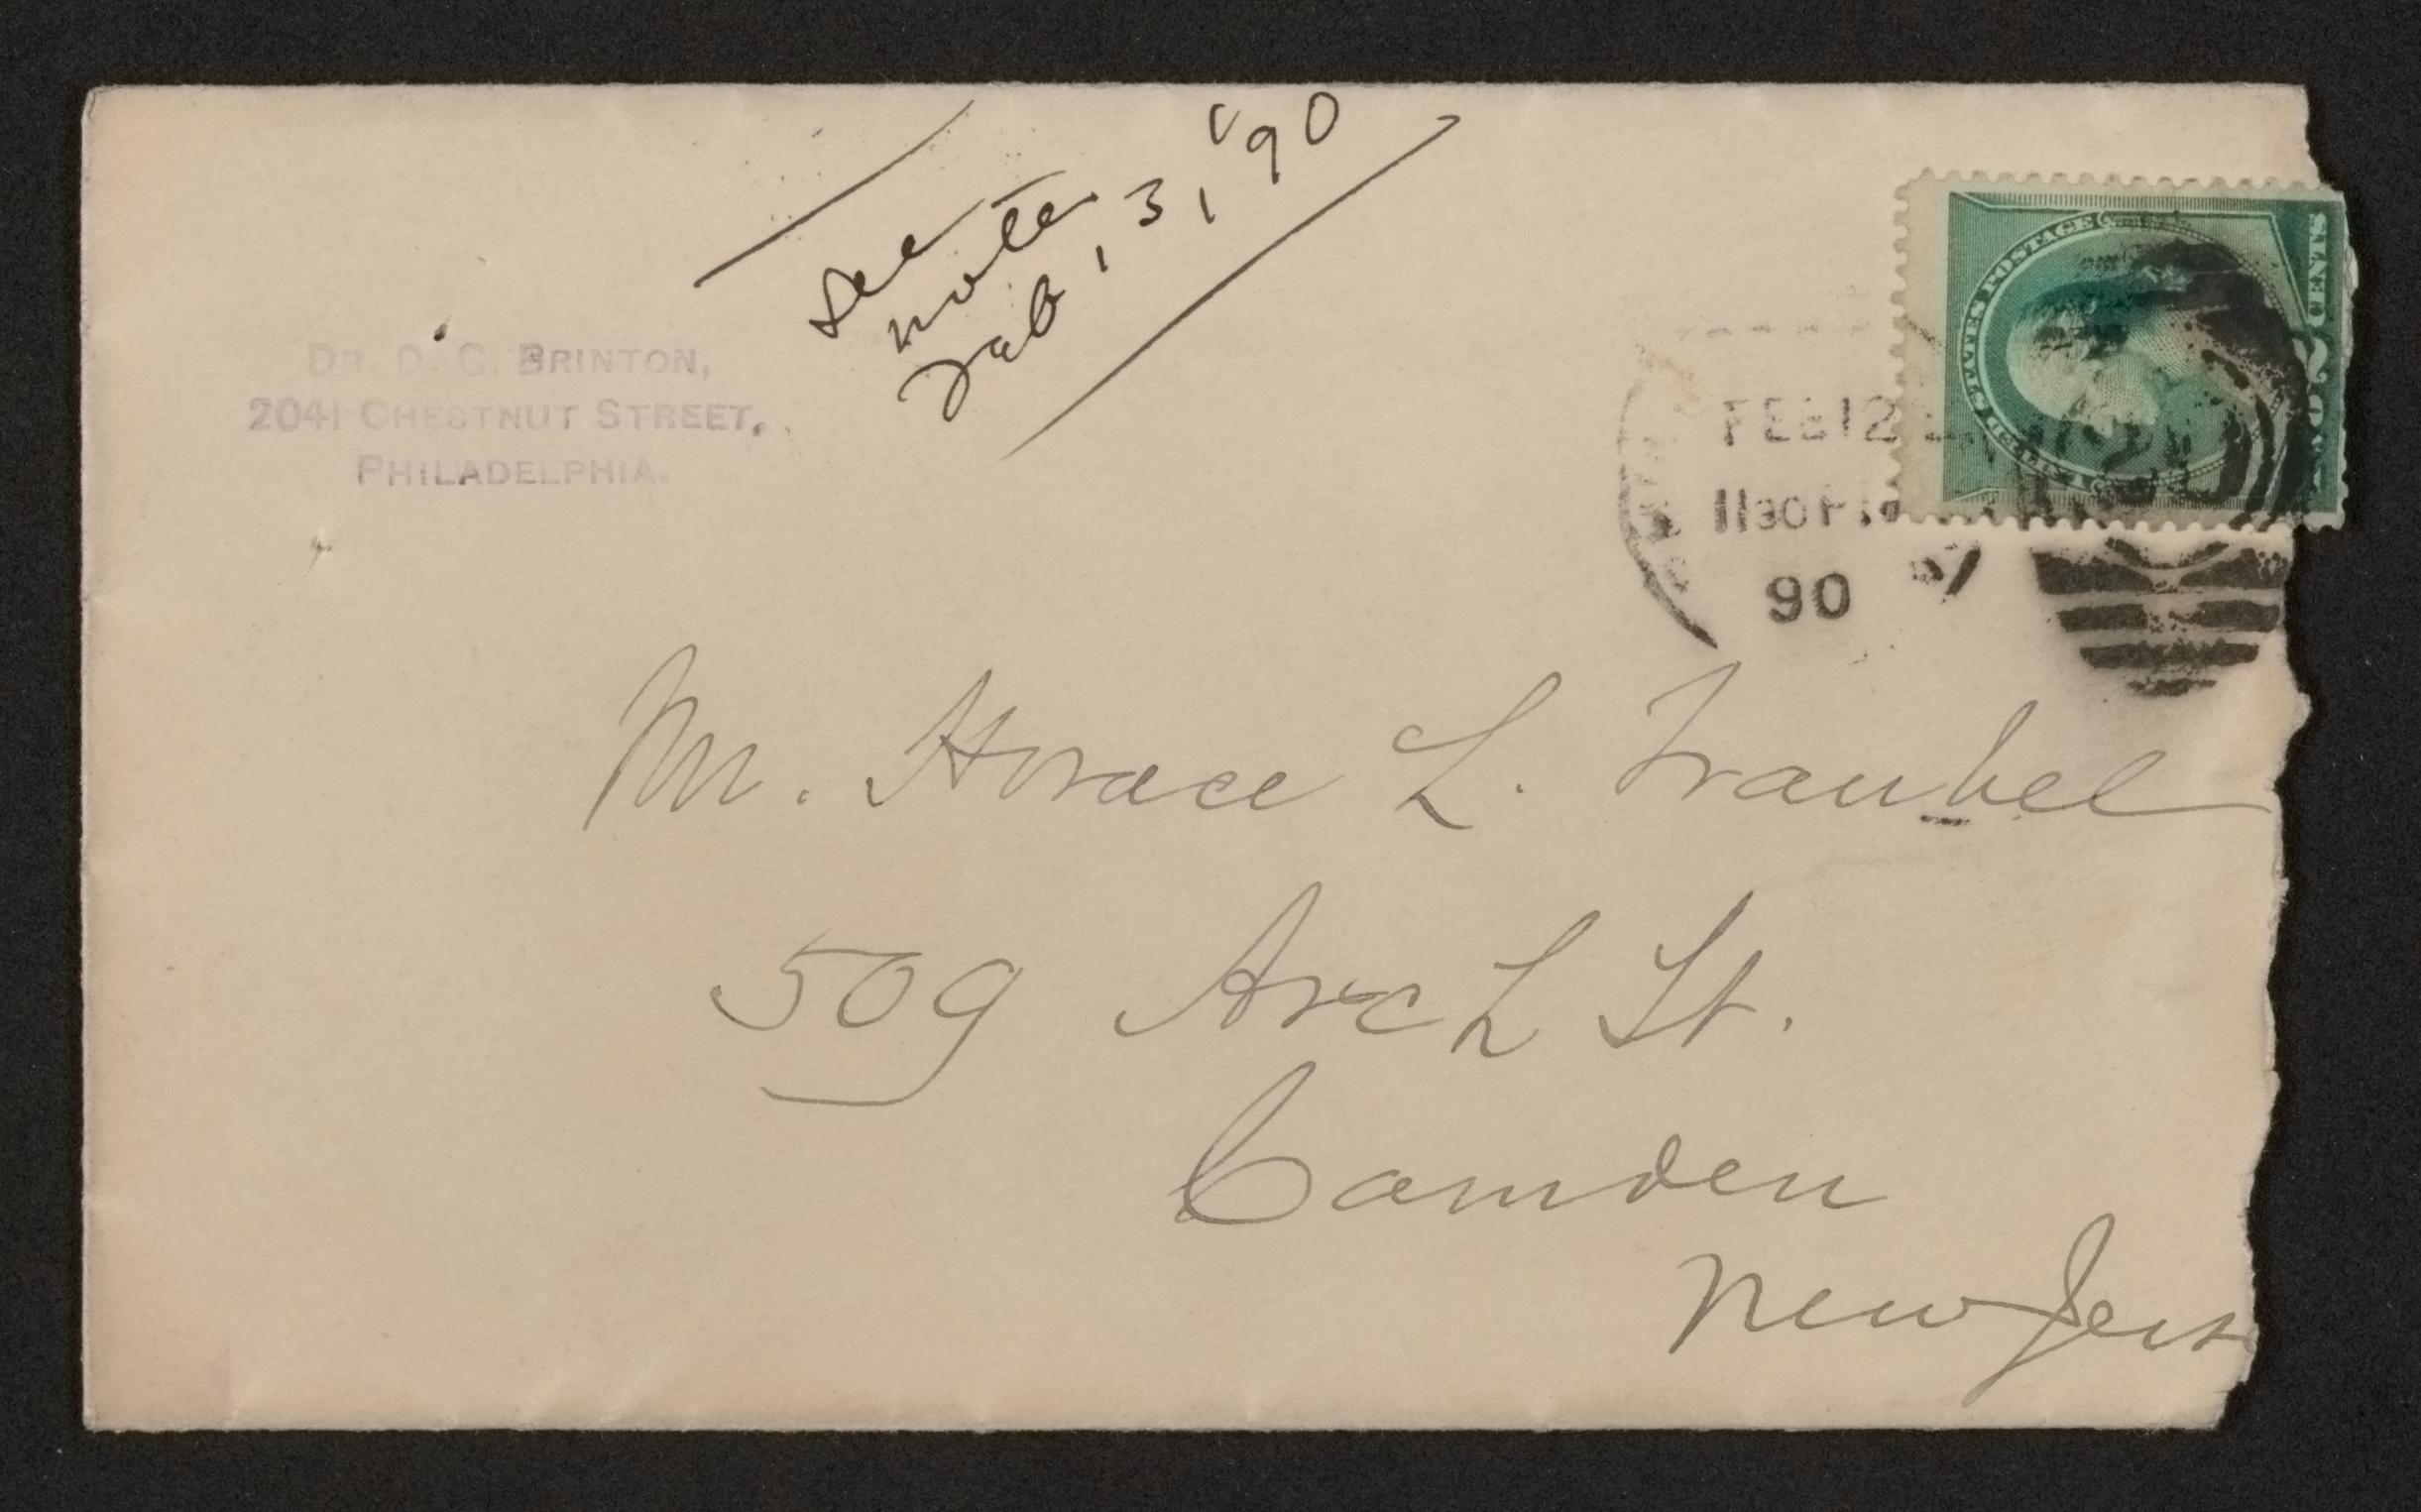 see
notes
Feb, 13, '90
DR. D. G. BRINTON,
2041 CHESTNUT STREET,
PHILADELPHIA.
FEB 12
1130 PM
90
UNITED STATES POSTAGE
TWO 2 CENTS
Mr. Horace L. Traubel
509 Arch St.
Camden
New Jers